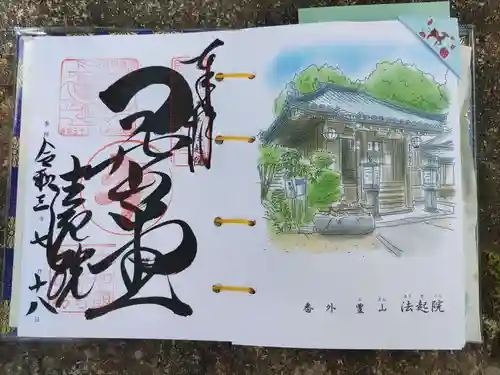 奉拝
開山堂
法起院
令和三年七月十八日
番外 豊山 法起院